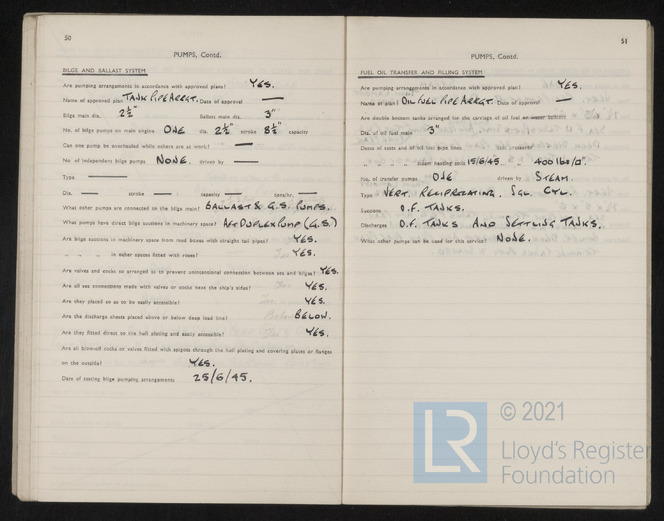 50
PUMPS, Contd.
BILGE AND BALLAST SYSTEM
Are pumping arrangements in accordance with approved plans? YES.
Name of approved plan TANK PIPE ARRGT. Date of approval —
Bilge main dia. 2½" Ballast main dia. 3"
No. of bilge pumps on main engine ONE dia. 2½" stroke 8½" capacity
Can one pump be overhauled while others are at work? —
No. of independent bilge pumps NONE. driven by —
Type —
Dia. — stroke — capacity — tons/hr. —
What other pumps are connected to the bilge main? BALLAST & G.S. PUMPS.
What pumps have direct bilge suctions in machinery space? AFT DUPLEX PUMP (G.S.)
Are bilge suctions in machinery space from mud boxes with straight tail pipes? YES.
" " " in other spaces fitted with roses? YES.
Are valves and cocks so arranged as to prevent unintentional connection between sea and bilges? YES.
Are all sea connections made with valves or cocks next the ship's sides? YES.
Are they placed so as to be easily accessible? YES.
Are the discharge chests placed above or below deep load line? BELOW.
Are they fitted direct to the hull plating and easily accessible? YES.
Are all blow-off cocks or valves fitted with spigots through the hull plating and covering plates or flanges
on the outside? YES.
Date of testing bilge pumping arrangements 25/6/45.
51
PUMPS, Contd.
FUEL OIL TRANSFER AND FILLING SYSTEM
Are pumping arrangements in accordance with approved plans? YES.
Name of plan OIL FUEL PIPE ARRGT. Date of approval —
Are double bottom tanks arranged for the carriage of oil fuel or water ballast?
Dia. of oil fuel main 3"
Dates of tests and of oil fuel pipe lines test pressure
" " " " steam heating coils 15/6/45. " " 400 lbs/□".
No. of transfer pumps ONE driven by STEAM.
Type VERT. RECIPROCATING. SGL. CYL.
Suctions O.F. TANKS.
Discharges O.F. TANKS AND SETTLING TANKS.
What other pumps can be used for this service? NONE.
LR © 2021
Lloyd's Register
Foundation